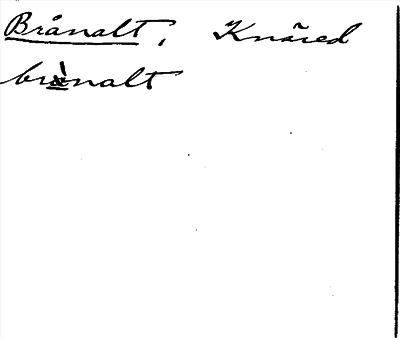 Brånalt, Knäred
brànalt